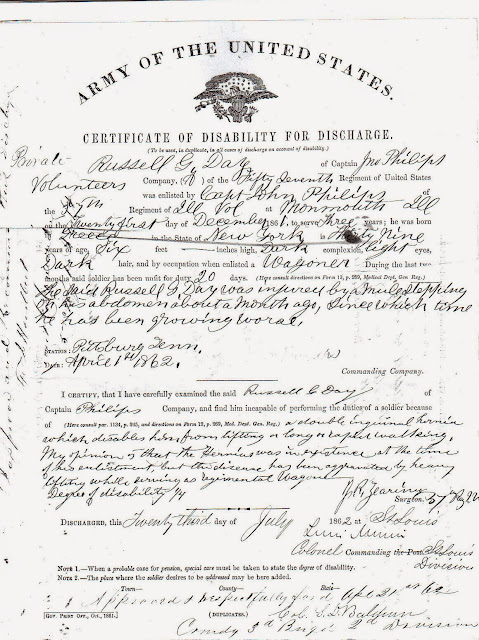 ARMY OF THE UNITED STATES.
CERTIFICATE OF DISABILITY FOR DISCHARGE.
(To be used, in duplicate, in all cases of discharge on account of disability.)
Russell G. Day of Captain Jno Philips
Volunteers Company, ( ) of the Fifty Seventh Regiment of United States
was enlisted by Capt John Philips of
the 57th Regiment of Ill Vol at Monmouth Ill
on the Twenty first day of December 1861, to serve Three years; he was born
in in the State of New York is Thirty Nine
years of age, Six feet inches high, Dark complexion, light eyes,
Dark hair, and by occupation when enlisted a Wagoner During the last two
months said soldier has been unfit for duty 20 days. (Here consult directions on Form 13, p. 269, Medical Dept. Gen Reg.)
The said Russell G. Day was injured by a mule stepping
on his abdomen about a month ago, since which time
he has been growing worse.
STATION: Pittsburg Tenn.
DATE: April 1st 1862.
Commanding Company.
I CERTIFY, that I have carefully examined the said Russell G Day of
Captain Philips Company, and find him incapable of performing the duties of a soldier because
of (Here consult par. 1134, p. 245, and directions on Form 13, p. 269, Med. Dept. Gen. Reg.) a double inguinal hernia
which disables him from lifting or long or rapid walking.
My opinion is that the Hernia was in existence at the time
of his enlistment, but the disease has been aggravated by heavy
lifting while serving as regimental Wagoner
Degree of disability
J. R. Zearing
Surgeon. 57
DISCHARGED, this Twenty third day of July 1862 at St Louis
Colonel Commanding the Post St Louis
Division
NOTE 1.—When a probable case for pension, special care must be taken to state the degree of disability.
NOTE 2.—The place where the soldier desires to be addressed may be here added.
Town— County— State—
Approved & respectfully ford. Apl 21st 62
[GOV. PRINT. OFF., Oct., 1861.] (DUPLICATES.) Col.
Comdg 3d Brig 2d Division